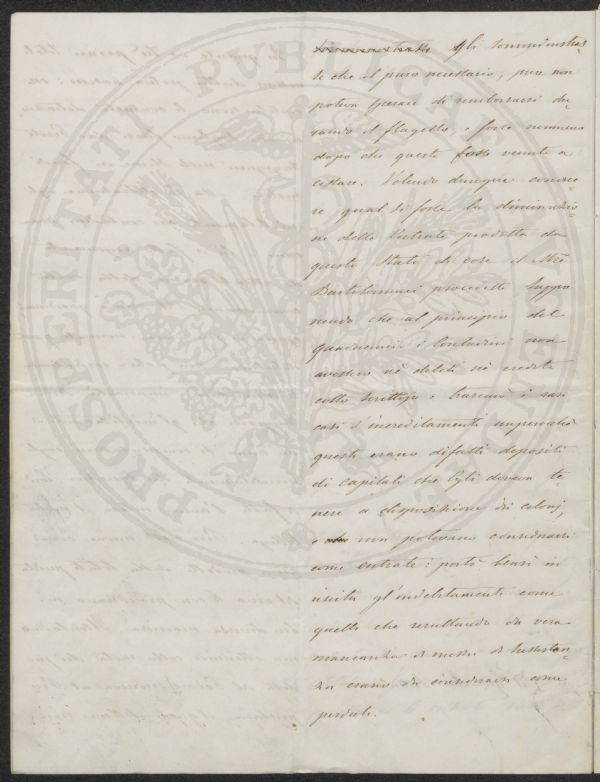 gli somministras-
se che il puro necessario, pure non
poteva sperare di rimborsarsi du-
rando il flagello, e forse nemmeno
dopo che questo fosse venuto a
cessare. Volendo dunque conosce-
re qual si fosse la diminuzio-
ne delle Entrate prodotta da
questo Stato di cose il
Bartolommei procedette suppo-
nendo che al principio del
quadriennio i Contadini non
avessero nè debiti nè crediti
collo Scrittojo: trascurò i rari
casi d'increditamenti
questi erano difatti depositi
di capitali che Egli doveva te-
nere a disposizione dei coloni,
e non potevano considerarsi
come entrate: portò bensì in
uscita gl'indebitamenti come
quelli che resultando da vera
mancanza di mezzi di sussisten-
za erano da considerarsi come
perduti.
PROSPERITATI PUBLICAE